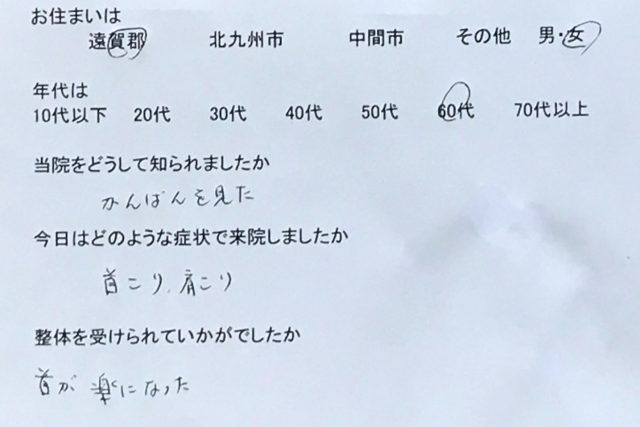 お住まいは
遠賀郡 北九州市 中間市 その他 男・女
年代は
10代以下 20代 30代 40代 50代 60代 70代以上
当院をどうして知られましたか
かんばんを見た
今日はどのような症状で来院しましたか
首こり、肩こり
整体を受けられていかがでしたか
首が楽になった